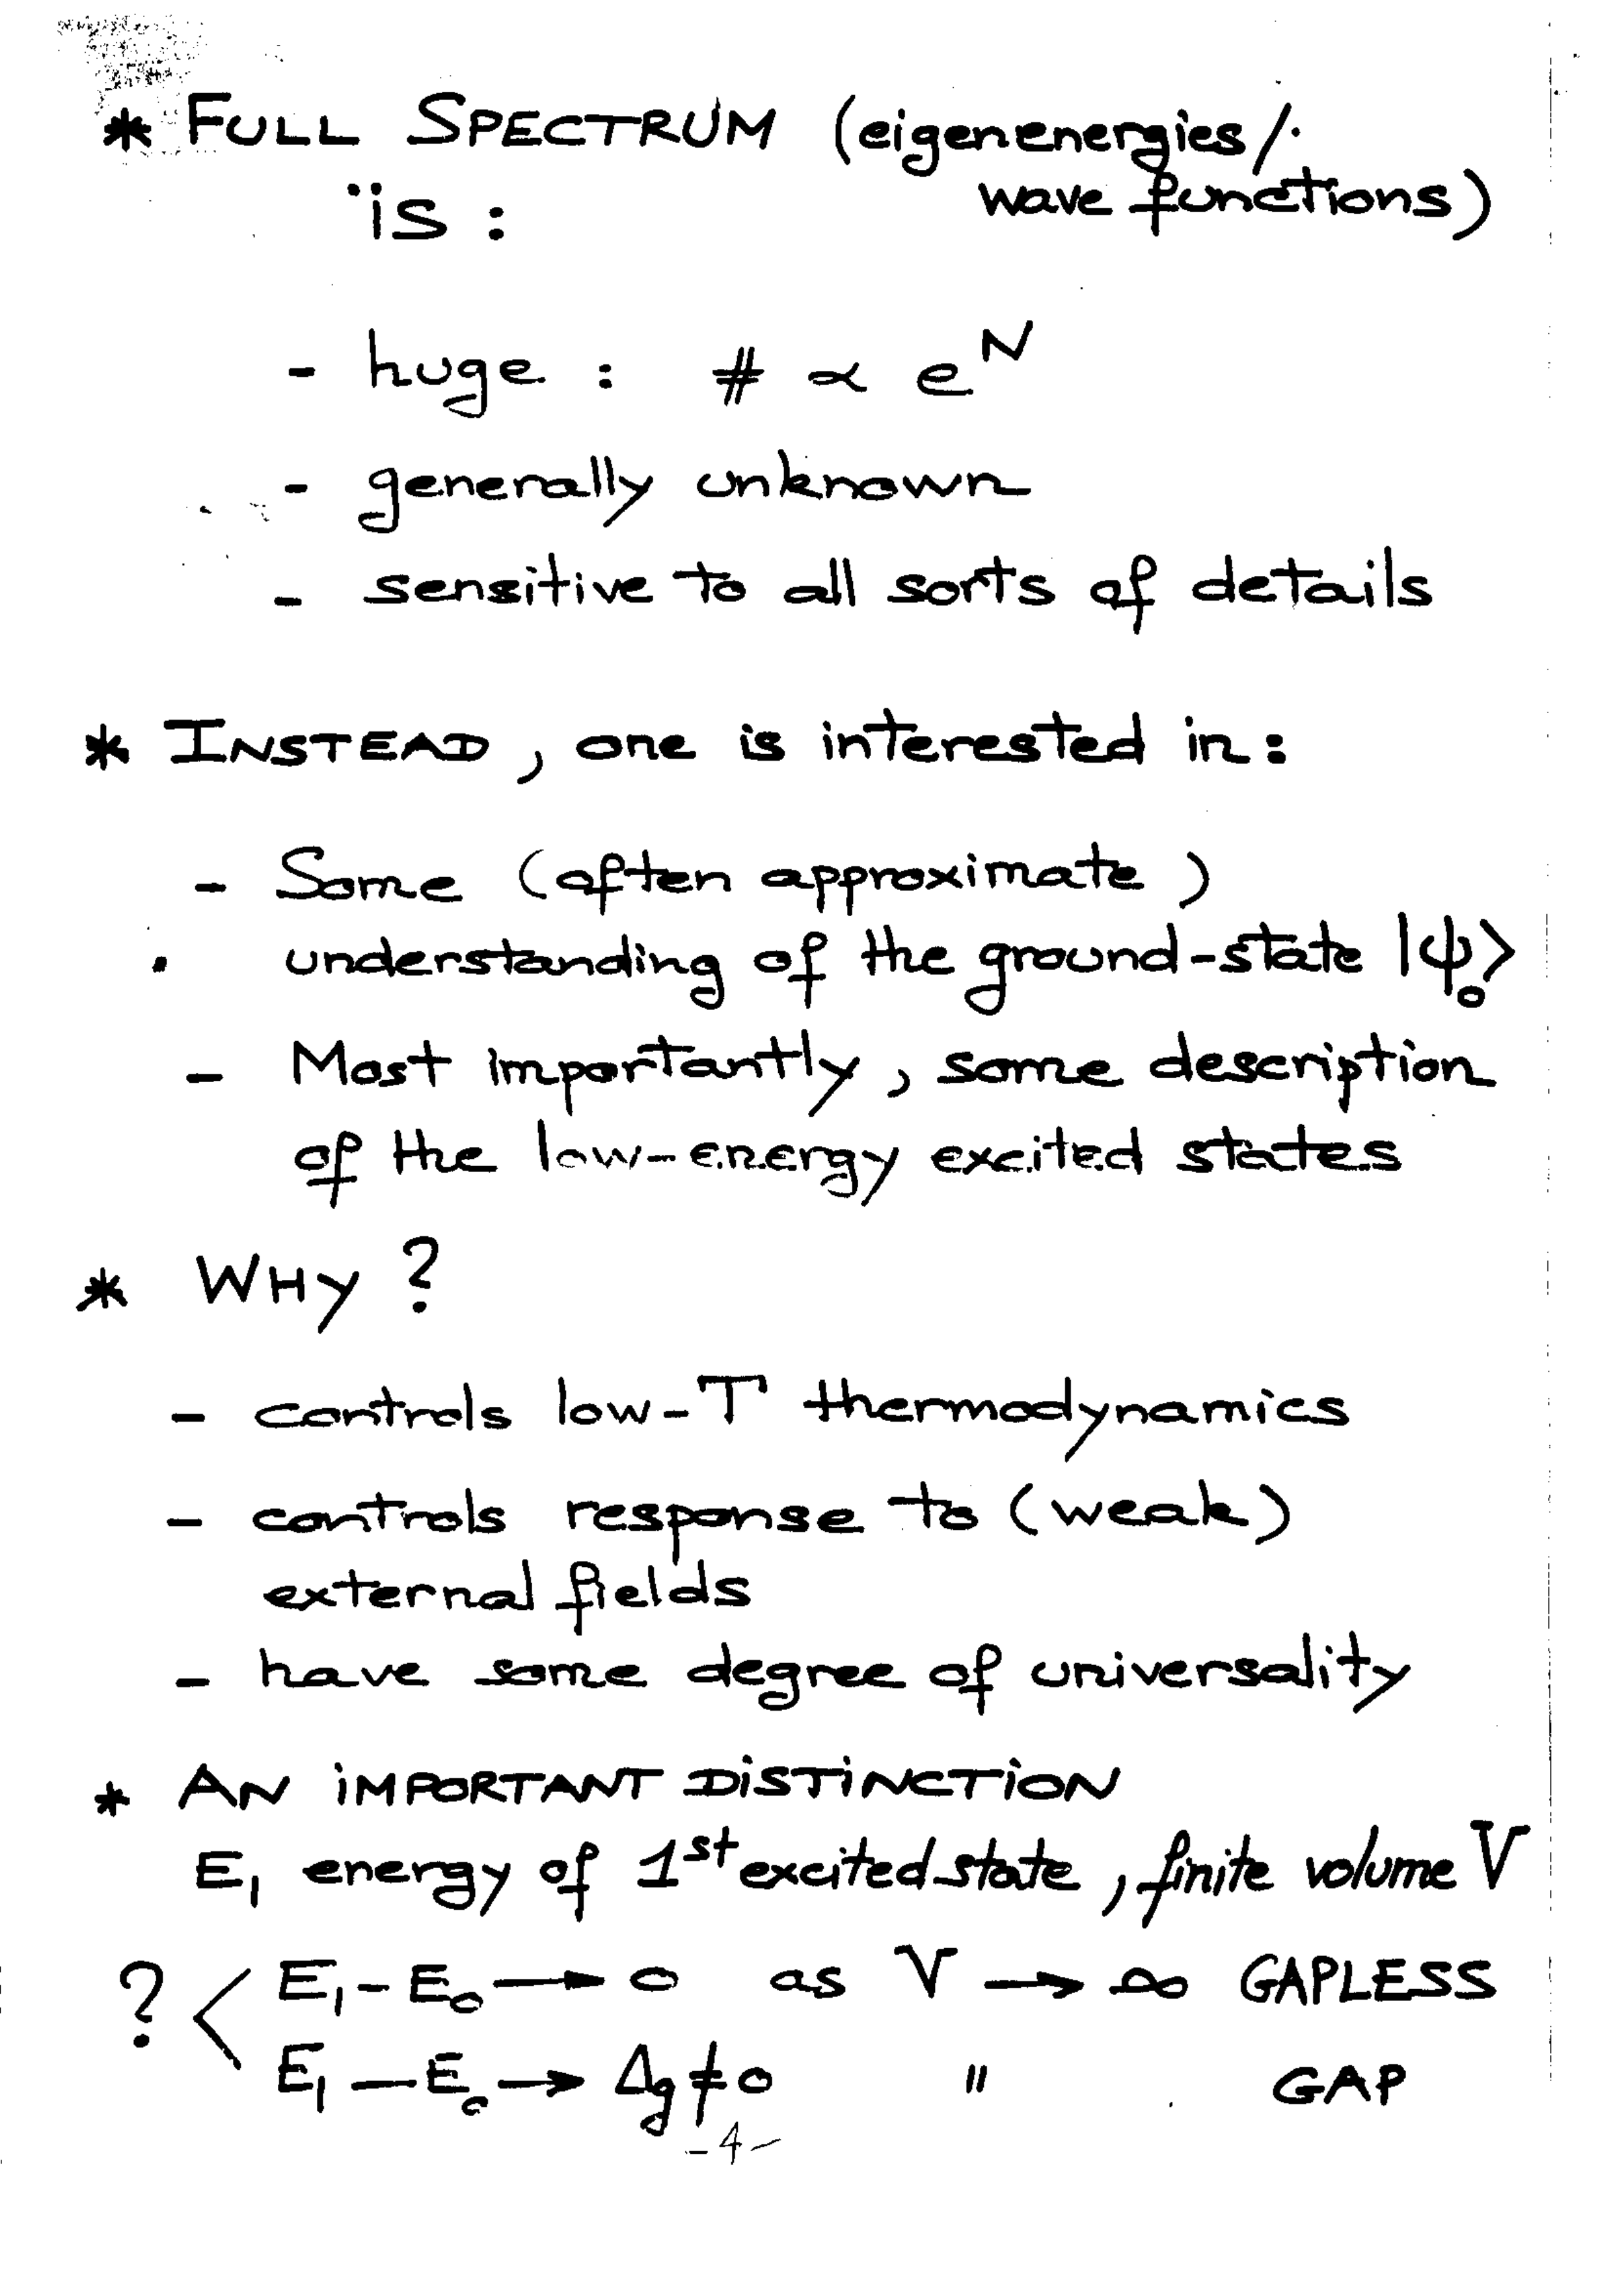 * FULL SPECTRUM (eigenenergies/
wave functions)
is :
- huge : # ∝ e^N
- generally unknown
- sensitive to all sorts of details
* INSTEAD, one is interested in:
- Some (often approximate)
understanding of the ground-state |ψ₀>
- Most importantly, some description
of the low-energy excited states
* WHY ?
- controls low-T thermodynamics
- controls response to (weak)
external fields
- have some degree of universality
* AN IMPORTANT DISTINCTION
E₁ energy of 1st excited state, finite volume V
? < E₁ - E₀ → 0 as V → ∞ GAPLESS
E₁ - E₀ → Δg ≠ 0 " GAP
-4-